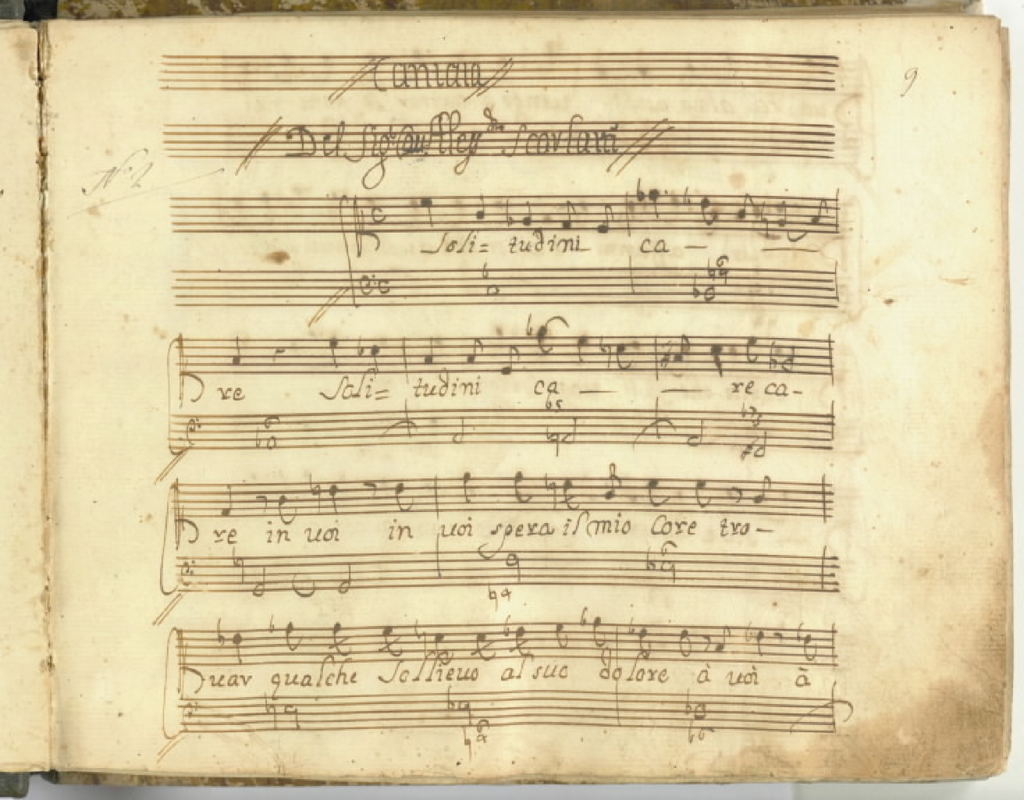 9
Cantata
Del Sig.r Cau. Aless.dro Scarlatti
N.o 2
Soli= tudini ca —
re Soli= tudini ca — — re ca-
re in uoi in uoi spera il mio Core tro-
uar qualche Sollieuo al suo dolore à uoi à